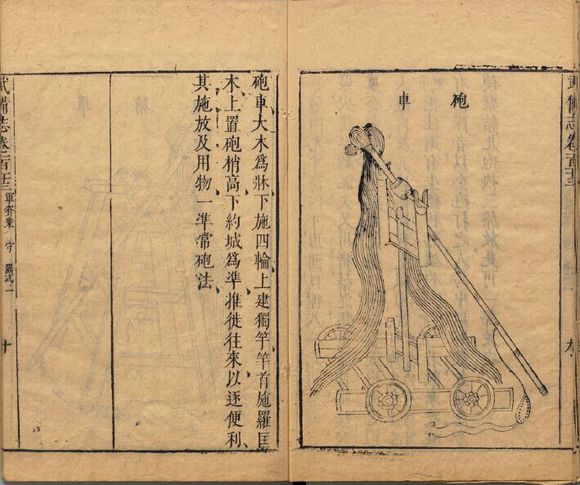 備志卷百十三
九
砲車
砲車大木爲牀下施四輪上建獨竿竿首施羅匡
木上置砲梢高下約城爲準推徙往來以逐便利
其施放及用物一準常砲法
武備志
軍資乘
守
器式二
十